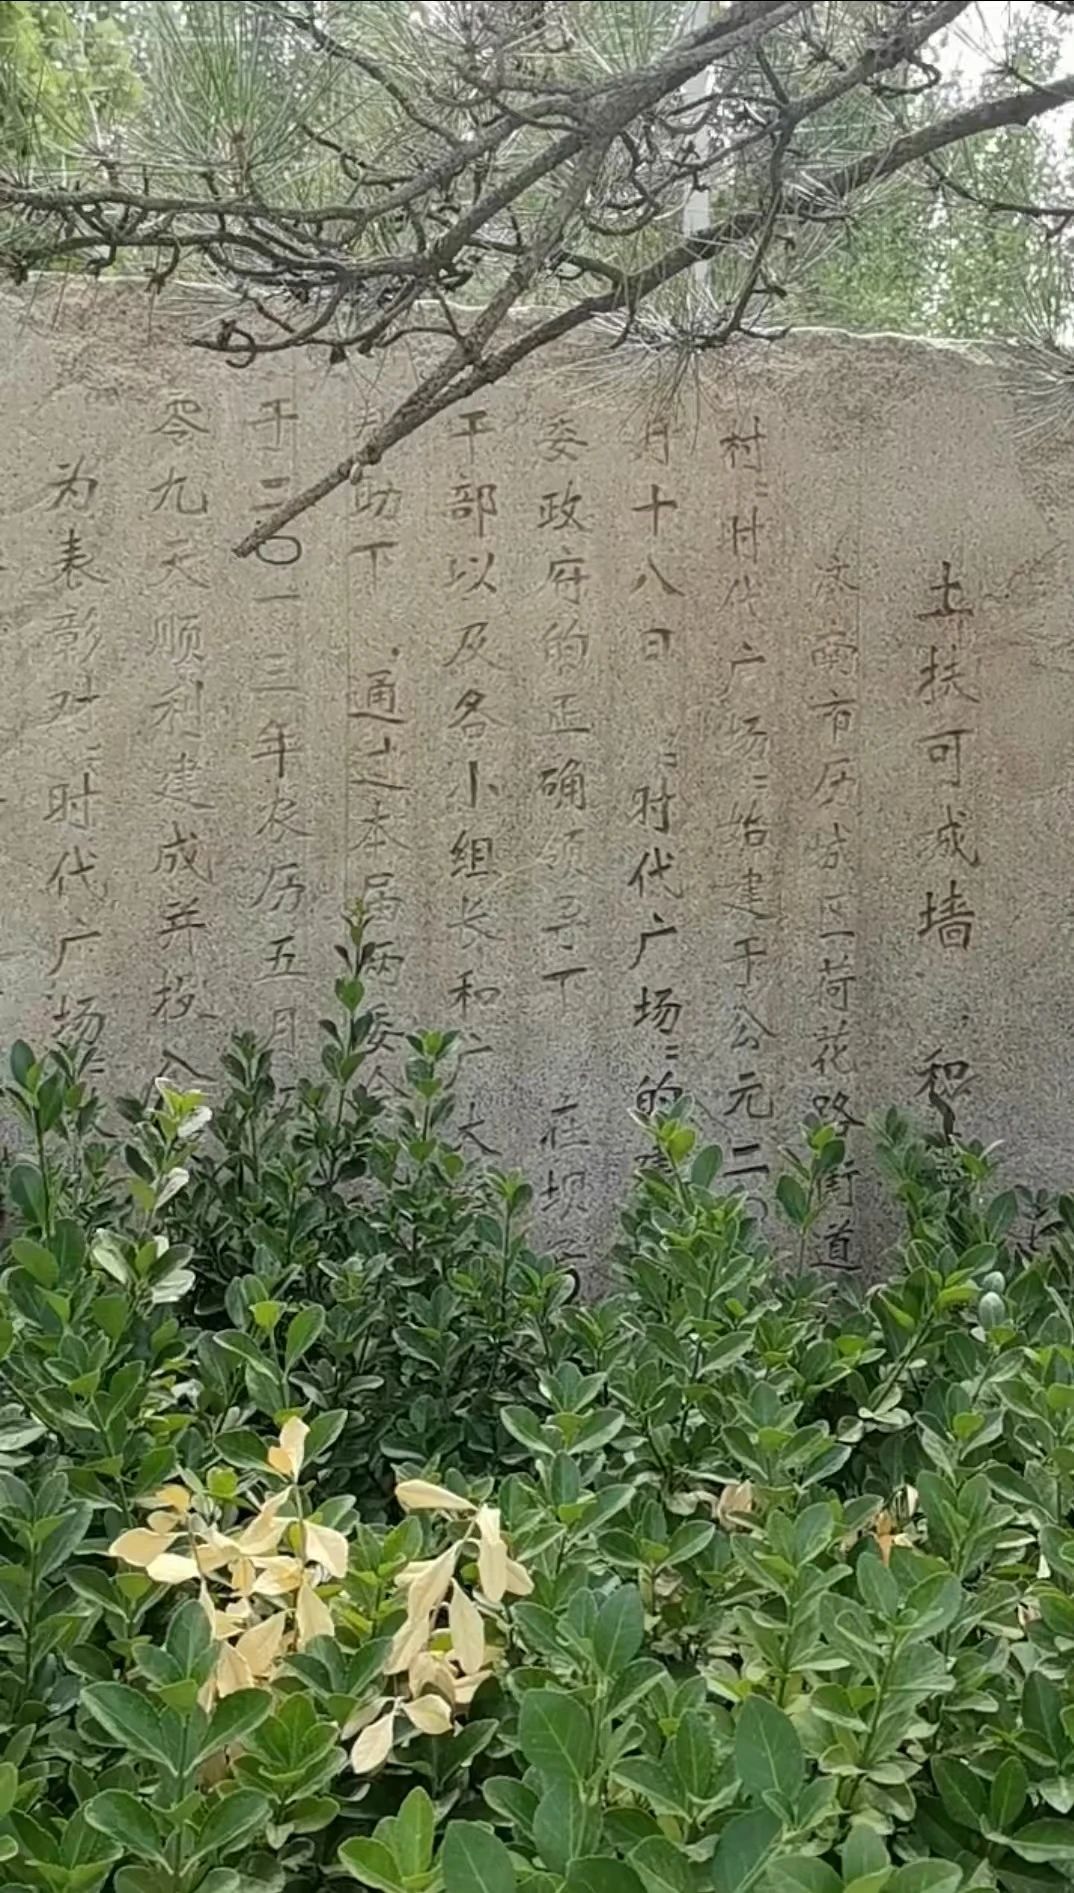 土扶可成墙，积
济南市历城区荷花路街道
村“时代广场”始建于公元二〇
月十八日。“时代广场”的建
委政府的正确领导下，在坝子
干部以及各小组长和广大
助下，通过本届两委会
于二〇一三年农历五月
零九天顺利建成并投入
为表彰对“时代广场”